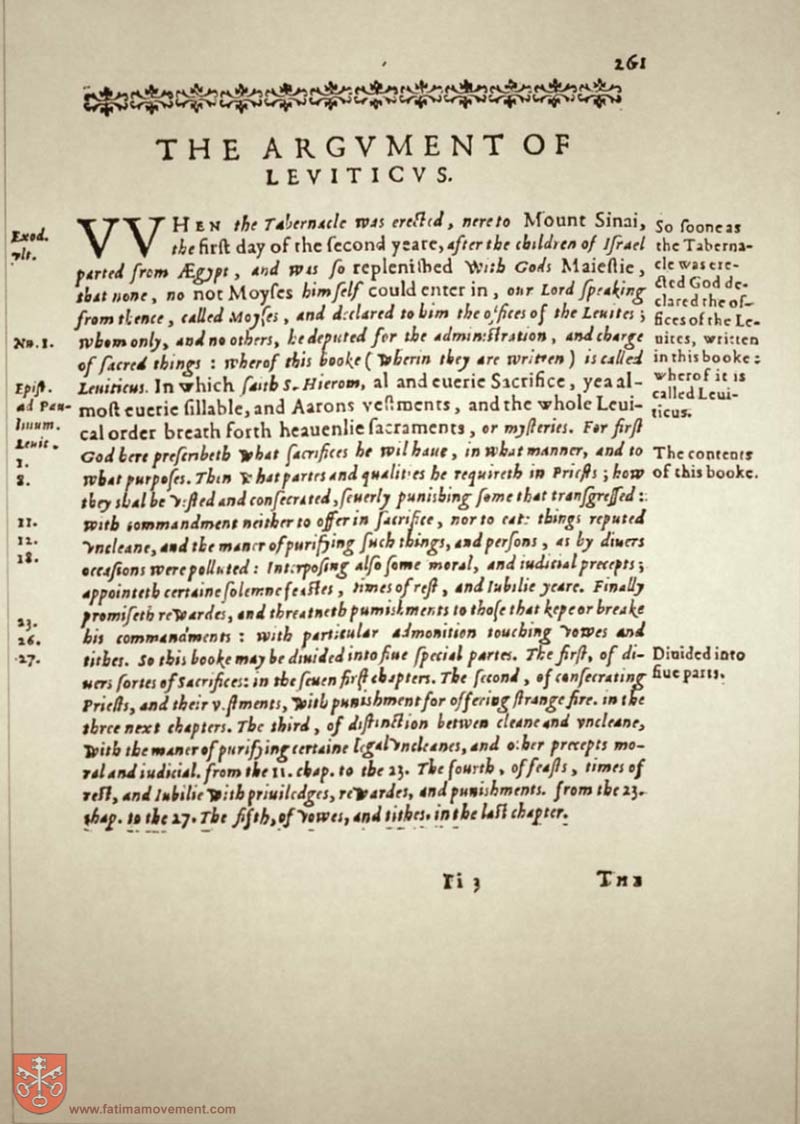 261
THE ARGVMENT OF
LEVITICVS.
VVHEN the Tabernacle was erected, nere to Mount Sinai,
the first day of the second yeare, after the children of Israel
parted from Ægypt, and was so replenished with Gods Maiestie,
that none, no not Moyses himself could enter in, our Lord speaking
from thence, called Moyses, and declared to him the offices of the Leuites;
whom only, and no others, he deputed for the administration, and charge
of sacred things: wherof this booke (wherin they are written) is called
Leuiticus. In which saith S. Hierom, al and euerie Sacrifice, yea al-
most euerie sillable, and Aarons vestments, and the whole Leui-
cal order breath forth heauenlie sacraments, or mysteries. For first
God here prescribeth what sacrifices he wil haue, in what manner, and to
what purposes. Then what partes and qualities he requireth in Priests; how
they shal be vested and consecrated, seuerly punishing some that transgressed:
with commandment neither to offer in sacrifice, nor to eate things reputed
vncleane, and the maner of purifying such things, and persons, as by diuers
occasions were polluted: Interposing also some moral, and iudicial precepts;
appointeth certaine solemne feastes, times of rest, and Iubilie yeare. Finally
promiseth rewardes, and threatneth pumishments to those that kepe or breake
his commandments: with particular admonition touching vowes and
tithes. So this booke may be diuided into fiue special partes. The first, of di-
uers sortes of Sacrifices: in the seuen first chapters. The second, of consecrating
Priests, and their vestments, with punishment for offering strange fire. in the
three next chapters. The third, of distinction betwen cleane and vncleane,
with the maner of purifying certaine legal vncleanes, and other precepts mo-
ral and iudicial. from the 11. chap. to the 23. The fourth, of feasts, times of
rest, and Iubilie with priuiledges, rewardes, and punishments. from the 23.
chap. to the 27. The fifth, of vowes, and tithes. in the last chapter.
Exod.
vlt.
Nu. 1.
Epist.
ad Pau-
linum.
Leuit.
1.
8.
11.
12.
18.
23.
26.
27.
So soone as
the Taberna-
cle was ere-
cted God de-
clared the of-
fices of the Le-
uites, written
in this booke:
wherof it is
called Leui-
ticus.
The contents
of this booke.
Diuided into
fiue parts.
Ii 3
THE
www.fatimamovement.com